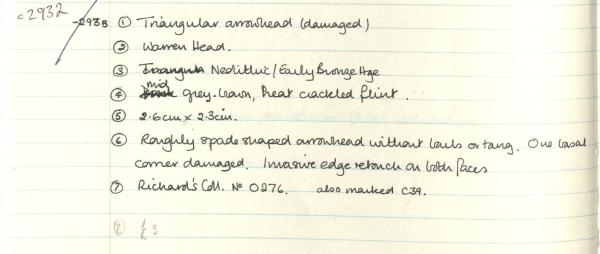 c2932
-2938 ① Triangular arrowhead (damaged)
② Warren Head.
③ Triangula Neolithic/Early Bronze Age
④ Dark mid grey-brown, heat crackled flint.
⑤ 2.6cm x 2.3cm.
⑥ Roughly spade shaped arrowhead without barbs or tang. One basal
corner damaged. Invasive edge retouch on both faces
⑦ Richard's Coll. No 0276. also marked C39.